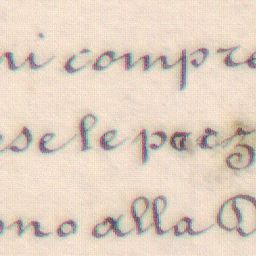 ni compre
ese le pecz
ono alla D